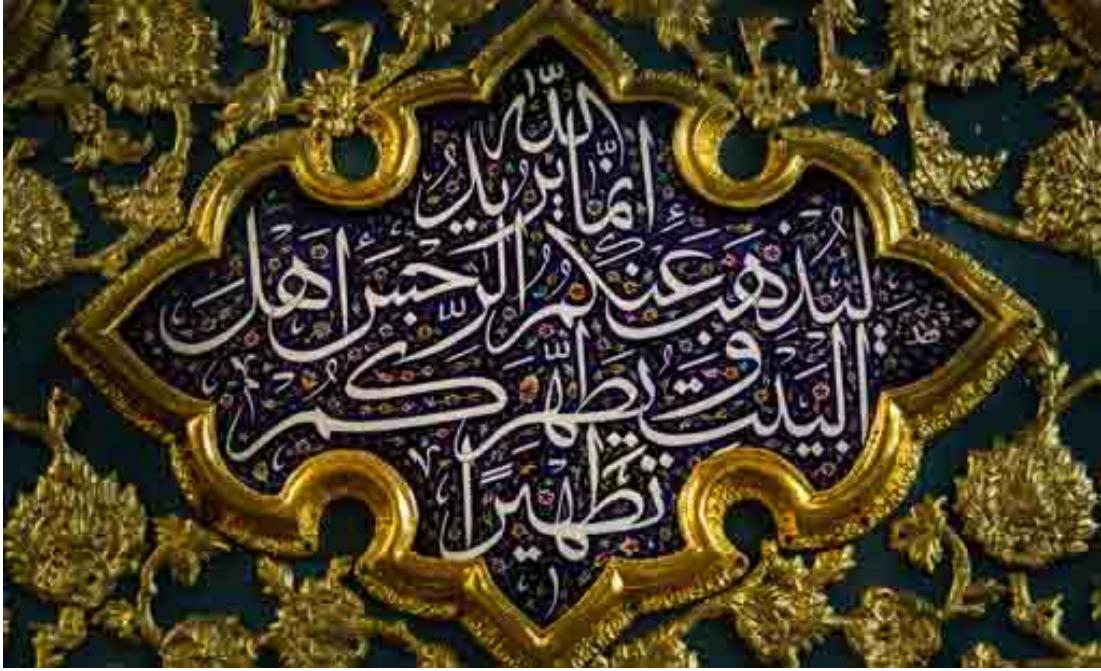 انّما يريدُ الله
ليُذهبَ عَنكُم الرّجسَ اهلَ
البَيتِ و يطهّركُم
تطهيرًا